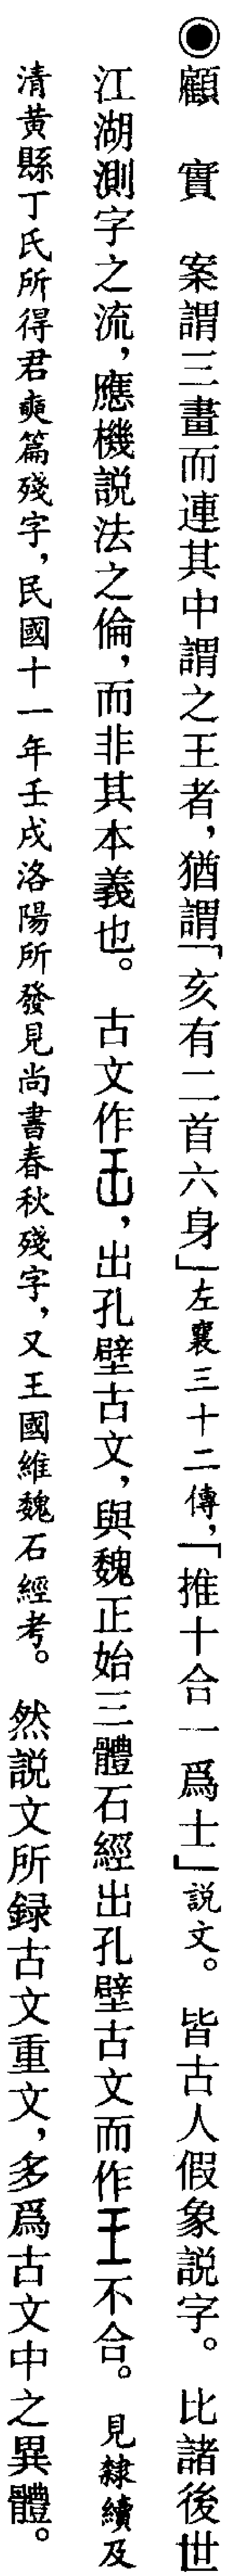 ◉顧　實　案謂三畫而連其中謂之王者，猶謂「亥有二首六身」左襄三十二傳，「推十合一爲士」説文。　皆古人假象説字。　比諸後世
江湖測字之流，應機説法之倫，而非其本義也。　古文作，出孔壁古文，與魏正始三體石經出孔壁古文而作王不合。　見隸續及
清黄縣丁氏所得君奭篇殘字，民國十一年壬戌洛陽所發見尚書春秋殘字，又王國維魏石經考。　然説文所録古文重文，多爲古文中之異體。